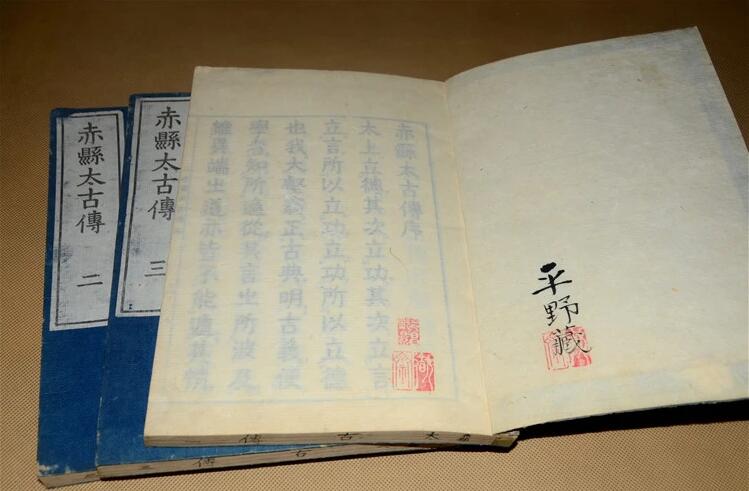 平野藏
赤縣太古傳序
太上立德其次立功其次立言
立言所以立功立功所以立德
也我大壑翁正古典明古義使
學者知所適從其言也所波及
雖異端之道亦皆不能遁其情
赤縣太古傳 三
赤縣太古傳 二
太古傳一
古傳三